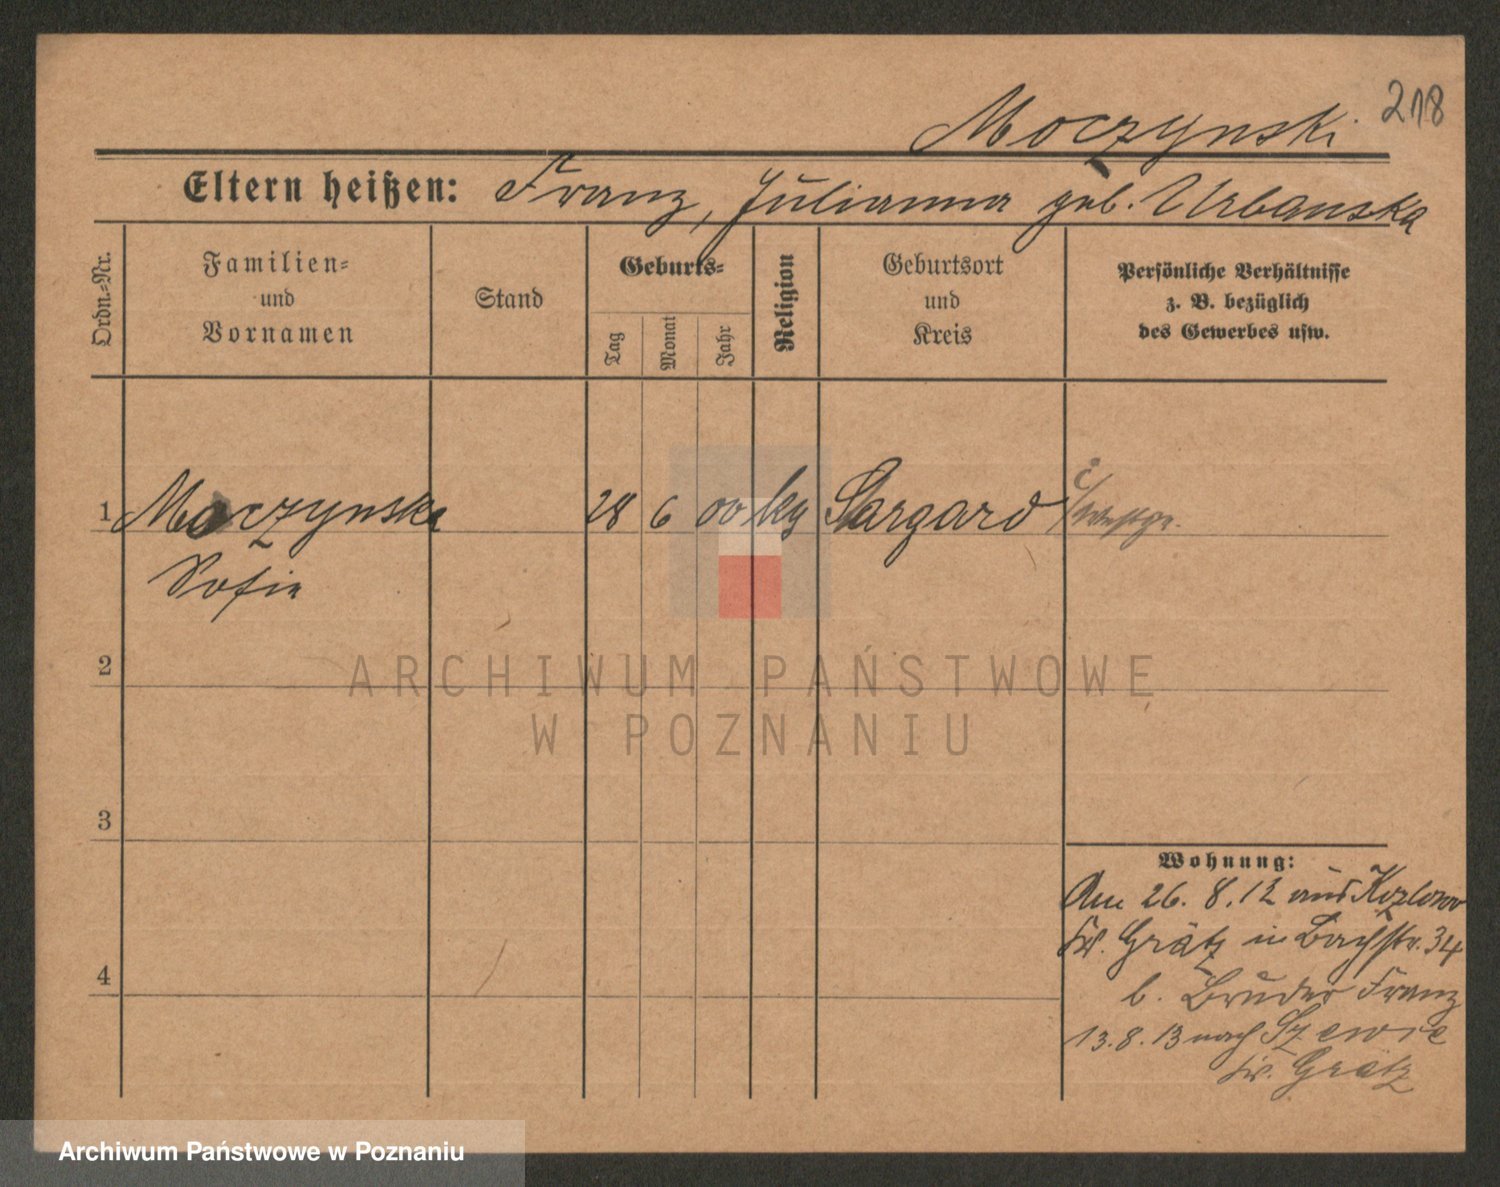 218
Moczynski
Eltern heißen: Franz, Julianna geb. Urbanska
Ordn.-Nr.
Familien-
und
Vornamen
Stand
Geburts-
Tag
Monat
Jahr
Religion
Geburtsort
und
Kreis
Persönliche Verhältnisse
z. B. bezüglich
des Gewerbes usw.
1 Moczynska 28 6 00 kg Stargard i/Westpr.
Sofie
2
3
4
Wohnung:
Am 26. 8. 12 aus Kozlowo
Kr. Grätz in Bachstr. 34
b. Bruder Franz
13. 8. 13 nach Szewce
Kr. Grätz
ARCHIWUM PAŃSTWOWE
W POZNANIU
Archiwum Państwowe w Poznaniu